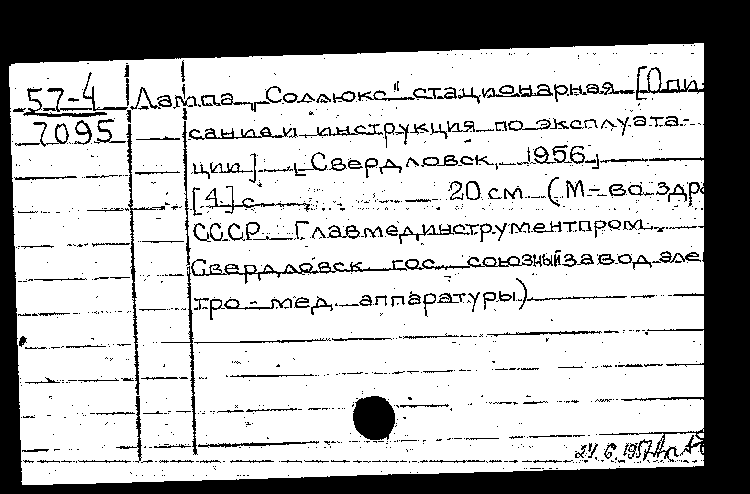 57-4 Лампа „Соллюкс" стационарная [Опи-
7095 сание и инструкция по эксплуата-
ции]. [Свердловск, 1956]
[4] с. 20 см (М-во здра
СССР. Главмединструментпром.
Свердловск. гос. союзный завод элек
тро-мед. аппаратуры)
24.6.1957